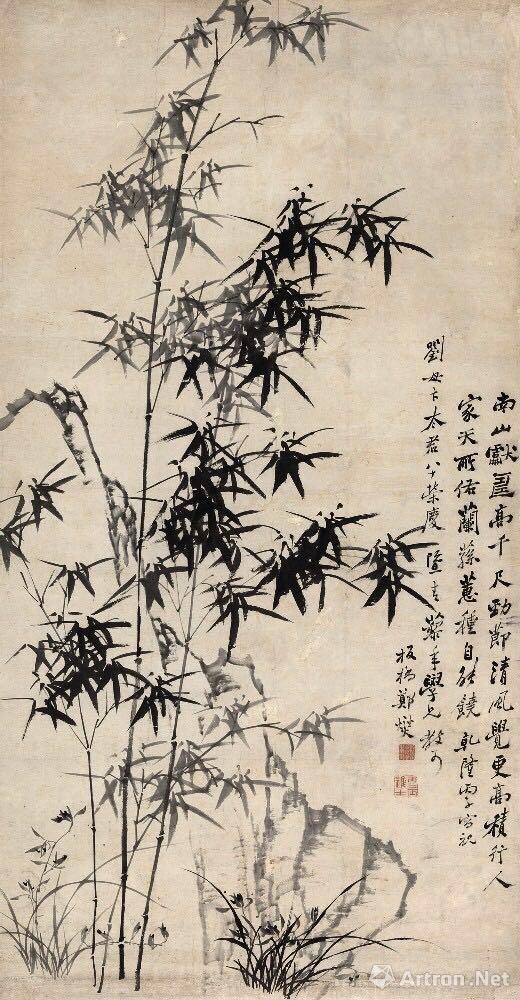 南山獻壽高千尺勁節清風覺更高積行人
家天所佑蘭蓀蕙種自能饒 乾隆丙子寫祝
劉母卞太君八十榮慶 並 青藜年學兄教可
板橋鄭燮
Artron.Net